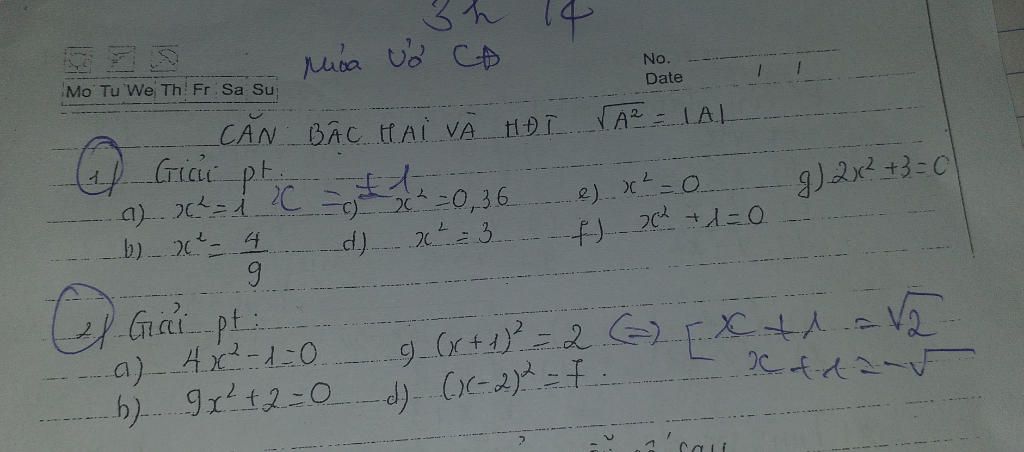 3h 14
Mo Tu We Th Fr Sa Su
No.
Date / /
CĂN BẬC HAI VÀ HĐT √A² = |A|
1/ Giải pt:
a) x² = 1 x = ±1 c) x² = 0,36 e) x² = 0 g) 2x² + 3 = 0
b) x² = 4/9 d) x² = 3 f) x² + 1 = 0
2/ Giải pt:
a) 4x² - 1 = 0 c) (x+1)² = 2 (=) [ x + 1 = √2
x + 1 = -√
b) 9x² + 2 = 0 d) (x-2)² = 7.